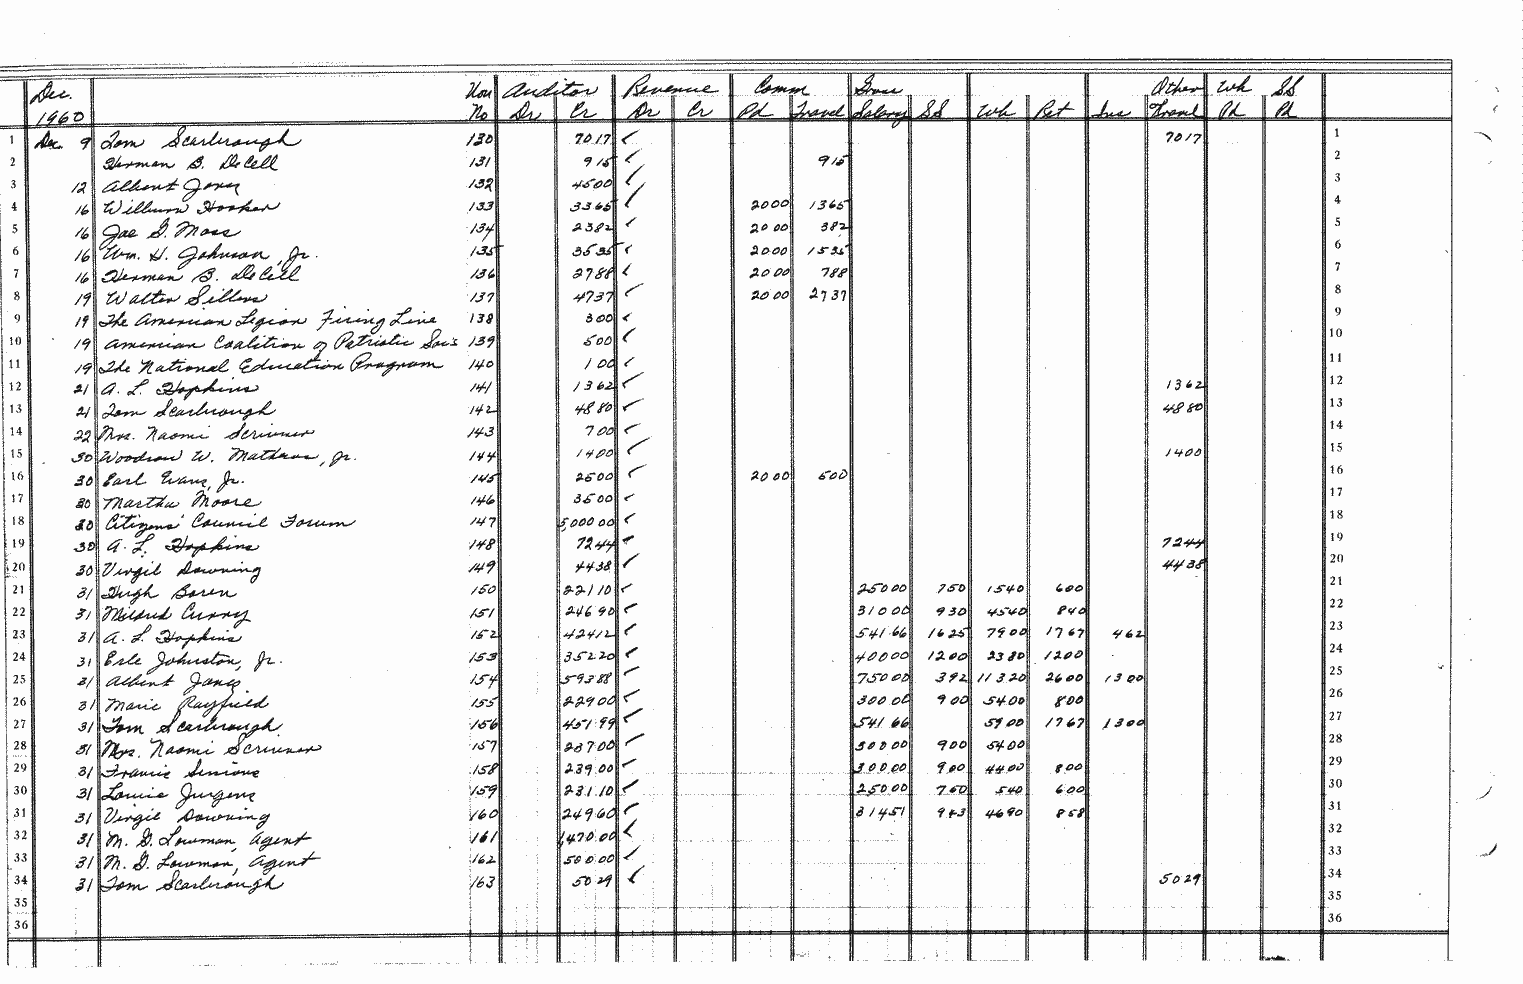 Dec. Vou Auditor Revenue Comm Gross Other Wh SS
1960 No Dr Cr Dr Cr Pd Travel Salary SS Wh Ret Ins Travel Pd Pd
1 Dec. 9 Tom Scarbrough 130 70 17 ✓ 70 17 1
2 Herman B. DeCell 131 9 15 ✓ 9 15 2
3 12 Albert Jones 132 45 00 ✓ 3
4 16 William Hooker 133 33 65 ✓ 20 00 13 65 4
5 16 Joe G. Moss 134 23 82 ✓ 20 00 3 82 5
6 16 Wm. H. Johnson, Jr. 135 35 35 ✓ 20 00 15 35 6
7 16 Herman B. DeCell 136 27 88 ✓ 20 00 7 88 7
8 19 Walter Sillers 137 47 37 ✓ 20 00 27 37 8
9 19 The American Legion Firing Line 138 3 00 ✓ 9
10 19 American Coalition of Patriotic Soc's 139 5 00 ✓ 10
11 19 The National Education Program 140 1 00 ✓ 11
12 21 A. L. Hopkins 141 13 62 ✓ 13 62 12
13 21 Tom Scarbrough 142 48 80 ✓ 48 80 13
14 22 Mrs. Naomi Scrivner 143 7 00 ✓ 14
15 30 Woodrow W. Mathews, Jr. 144 14 00 ✓ 14 00 15
16 30 Earl Evans, Jr. 145 25 00 ✓ 20 00 5 00 16
17 30 Martha Moore 146 35 00 ✓ 17
18 30 Citizens' Council Forum 147 5,000 00 ✓ 18
19 30 A. L. Hopkins 148 72 44 ✓ 72 44 19
20 30 Virgil Downing 149 44 38 ✓ 44 38 20
21 31 Hugh Boren 150 221 10 ✓ 250 00 7 50 15 40 6 00 21
22 31 Mildred Curry 151 246 90 ✓ 310 00 9 30 45 40 8 40 22
23 31 A. L. Hopkins 152 424 12 ✓ 541 66 16 25 79 00 17 67 4 62 23
24 31 Erle Johnston, Jr. 153 352 20 ✓ 400 00 12 00 23 80 12 00 24
25 31 Albert Jones 154 593 88 ✓ 750 00 3 92 113 20 26 00 13 00 25
26 31 Marie Rayfield 155 229 00 ✓ 300 00 9 00 54 00 8 00 26
27 31 Tom Scarbrough 156 451 99 ✓ 541 66 59 00 17 67 13 00 27
28 31 Mrs. Naomi Scrivner 157 237 00 ✓ 300 00 9 00 54 00 28
29 31 Francis 158 239 00 ✓ 300 00 9 00 44 00 8 00 29
30 31 Louise Jurgens 159 231 10 ✓ 250 00 7 50 5 40 6 00 30
31 31 Virgil Downing 160 249 60 ✓ 314 51 9 43 46 90 8 58 31
32 31 M. G. Lowman, Agent 161 1,470 00 ✓ 32
33 31 M. G. Lowman, Agent 162 500 00 ✓ 33
34 31 Tom Scarbrough 163 50 29 ✓ 50 29 34
35 35
36 36